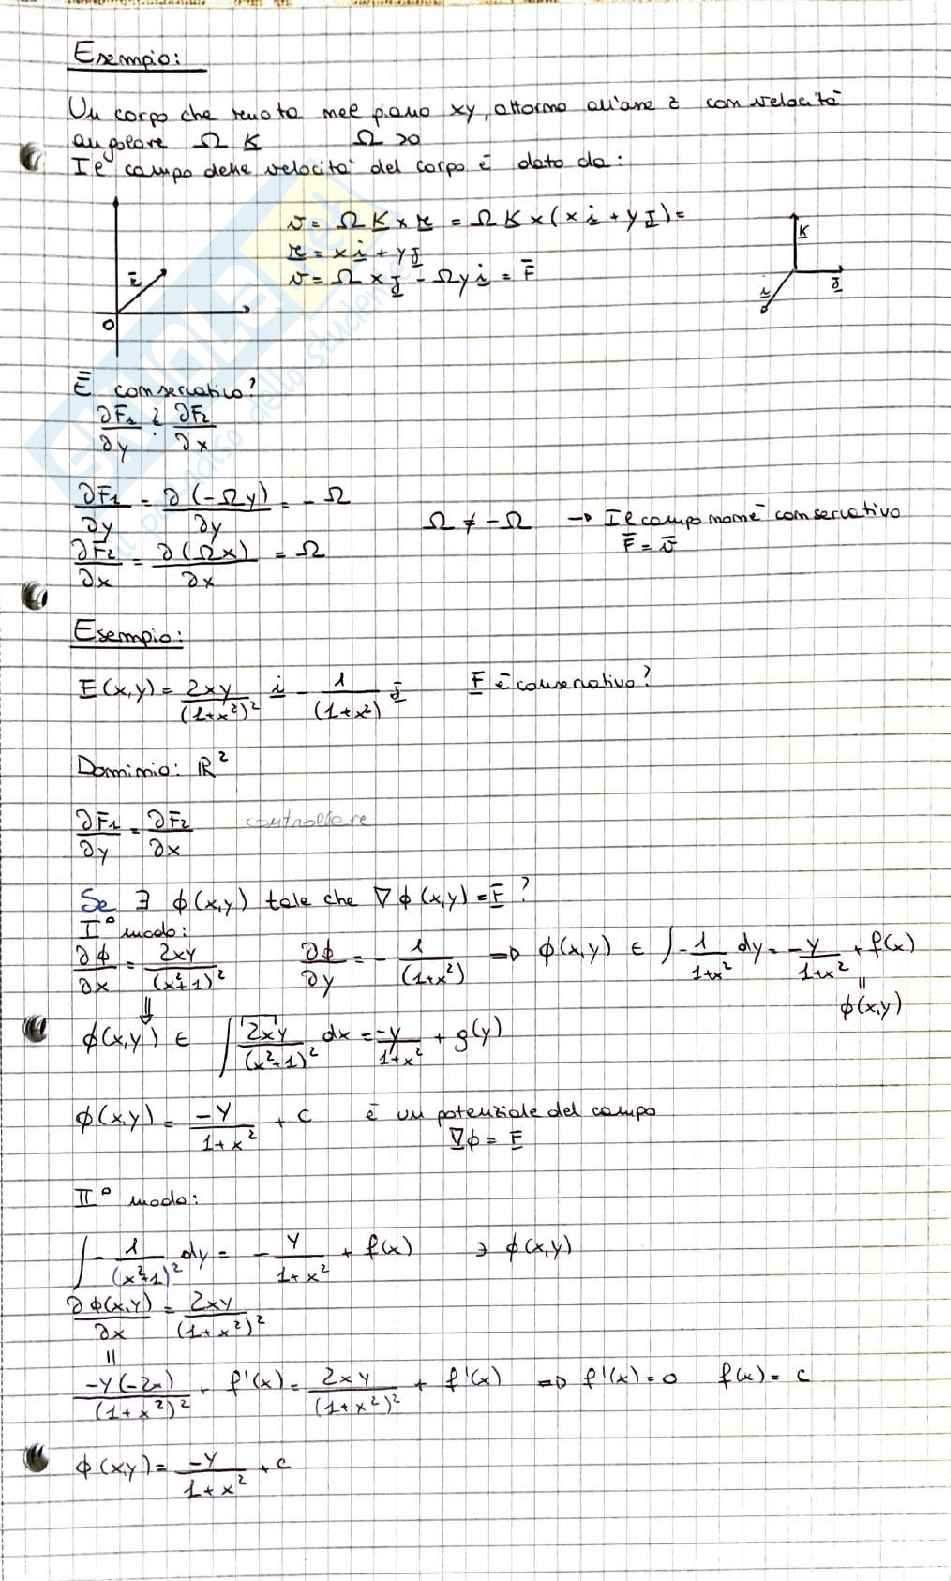 Esempio:
Un corpo che ruota nel piano xy, attorno all'asse z con velocità
angolare Ω k Ω >0
Il campo delle velocità del corpo è dato da:
v = Ω k × r = Ω k × (x i + y j) =
r = x i + y j
v = Ω x j - Ω y i = F
k
r
i
j
O
È conservativo?
∂F₁ ? ∂F₂
∂y ∂x
∂F₁ = ∂(-Ωy) = -Ω
∂y ∂y
Ω ≠ -Ω → Il campo non è conservativo
F = v
∂F₂ = ∂(Ωx) = Ω
∂x ∂x
Esempio:
F(x,y) = 2xy/(1+x²)² i - 1/(1+x²) j F è conservativo?
Dominio: ℝ²
∂F₁/∂y = ∂F₂/∂x controllare
Se ∃ φ(x,y) tale che ∇φ(x,y) = F ?
I° modo:
∂φ/∂x = 2xy/(x²+1)² ∂φ/∂y = - 1/(1+x²) ⇒ φ(x,y) ∈ ∫ - 1/(1+x²) dy = -y/(1+x²) + f(x)
⇓ =
φ(x,y)
φ(x,y) ∈ ∫ 2xy/(x²+1)² dx = -y/(1+x²) + g(y)
φ(x,y) = -y/(1+x²) + c è un potenziale del campo
∇φ = F
II° modo:
∫ - 1/(x²+1)² dy = - y/(1+x²) + f(x) ∋ φ(x,y)
∂φ(x,y)/∂x = 2xy/(1+x²)²
=
-y(-2x)/(1+x²)² + f'(x) = 2xy/(1+x²)² + f'(x) ⇒ f'(x) = 0 f(x) = c
φ(x,y) = -y/(1+x²) + c